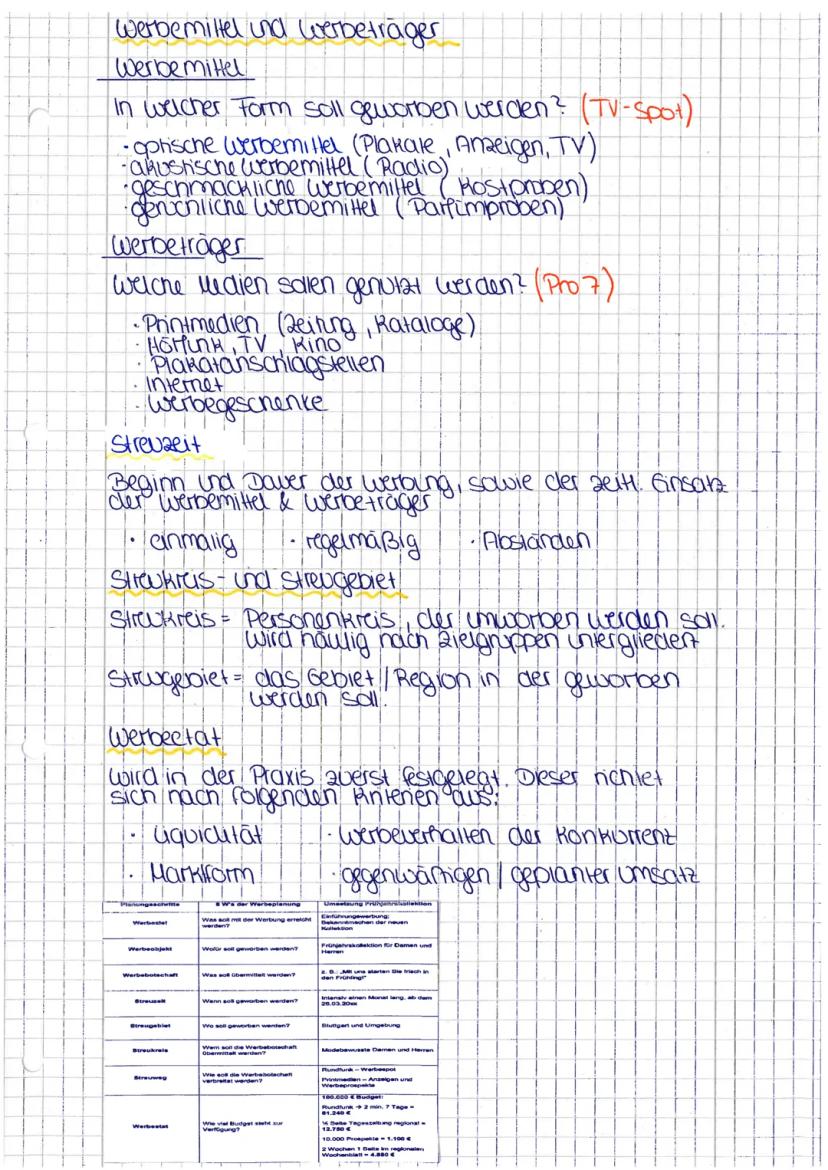 Werbemittel und Werbeträger
Werbemittel
In welcher Form soll geworben werden? (TV-Spot)
· optische Werbemittel (Plakate, Anzeigen, TV)
· akustische Werbemittel (Radio)
· geschmackliche Werbemittel (Kostproben)
· geruchliche Werbemittel (Parfümproben)
Werbeträger
Welche Medien sollen genutzt werden? (Pro 7)
· Printmedien (Zeitung, Kataloge)
· Hörfunk, TV, Kino
· Plakatanschlagstellen
· Internet
· Werbegeschenke
Streuzeit
Beginn und Dauer der Werbung, sowie der zeitl. Einsatz
der Werbemittel & Werbeträger
· einmalig · regelmäßig · Abständen
Streukreis- und Streugebiet
Streukreis = Personenkreis, der umworben werden soll.
Wird häufig nach Zielgruppen untergliedert
Streugebiet = das Gebiet / Region in der geworben
werden soll.
Werbeetat
Wird in der Praxis zuerst festgelegt. Dieser richtet
sich nach folgenden Kriterien aus:
· Liquidität · Werbeverhalten der Konkurrent
· Marktform · gegenwärtigen / geplanter Umsatz
Planungsschritte 8 W's der Werbeplanung Umsetzung Frühjahrskollektion
Werbeziel Was soll mit der Werbung erreicht werden? Einführungswerbung; Bekanntmachen der neuen Kollektion
Werbeobjekt Wofür soll geworben werden? Frühjahrskollektion für Damen und Herren
Werbebotschaft Was soll übermittelt werden? z. B.: „Mit uns starten Sie frisch in den Frühling!"
Streuzeit Wann soll geworben werden? Intensiv einen Monat lang, ab dem 26.03.20xx
Streugebiet Wo soll geworben werden? Stuttgart und Umgebung
Streukreis Wem soll die Werbebotschaft übermittelt werden? Modebewusste Damen und Herren
Streuweg Wie soll die Werbebotschaft verbreitet werden? Rundfunk – Werbespot
Printmedien – Anzeigen und Werbeprospekte
Werbeetat Wie viel Budget steht zur Verfügung? 100.000 € Budget:
Rundfunk → 2 min. 7 Tage = 81.240 €
¼ Seite Tageszeitung regional = 12.780 €
10.000 Prospekte = 1.100 €
2 Wochen 1 Seite im regionalen Wochenblatt = 4.880 €